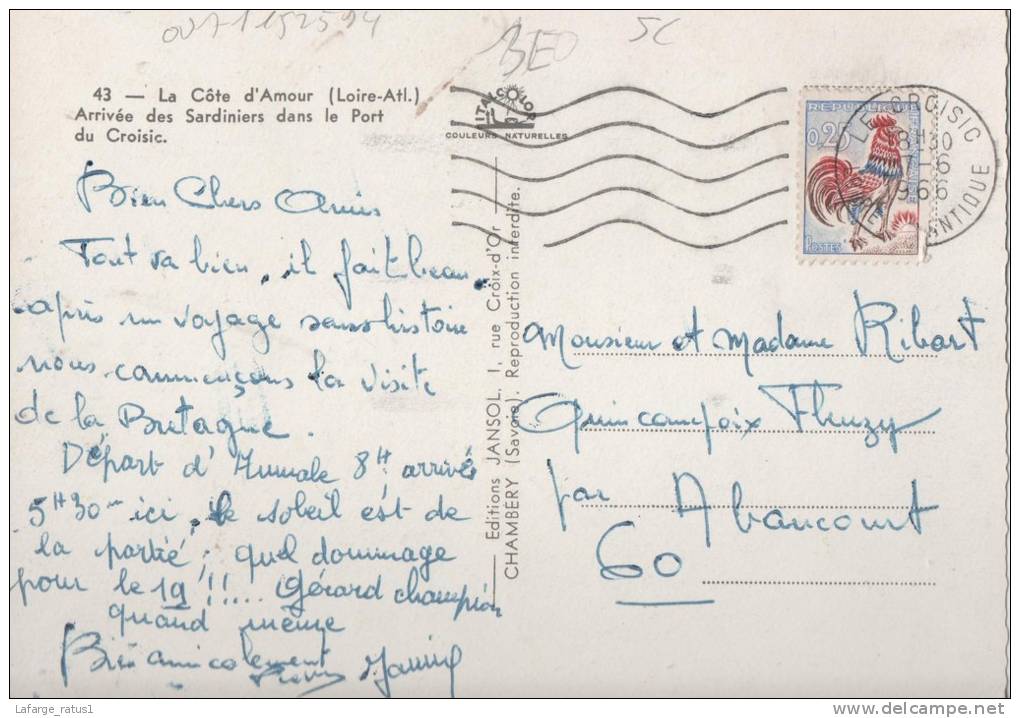 00711192594
BEO
5C
43 — La Côte d'Amour (Loire-Atl.)
Arrivée des Sardiniers dans le Port
du Croisic.
ITALCOLOR
COULEURS NATURELLES
RÉPUBLIQUE
FRANÇAISE
0,25
POSTES
LE CROISIC
18H30
7-6
1966
LOIRE ATLANTIQUE
Bien Chers Amis
Tout va bien, il fait beau
après un voyage sans histoire
nous commençons la visite
de la Bretagne.
Départ d'Aumale 8H arrivée
5H30 ici, le soleil est de
la partie, quel dommage
pour le 19!!!.... Gérard champion
quand même
Bien amicalement
Editions JANSOL, 1, rue Croix-d'Or
CHAMBÉRY (Savoie). Reproduction interdite.
Monsieur et Madame Ribart
Quincampoix Fleuzy
par Abancourt
60
Lafarge_ratus1
delcampe.net